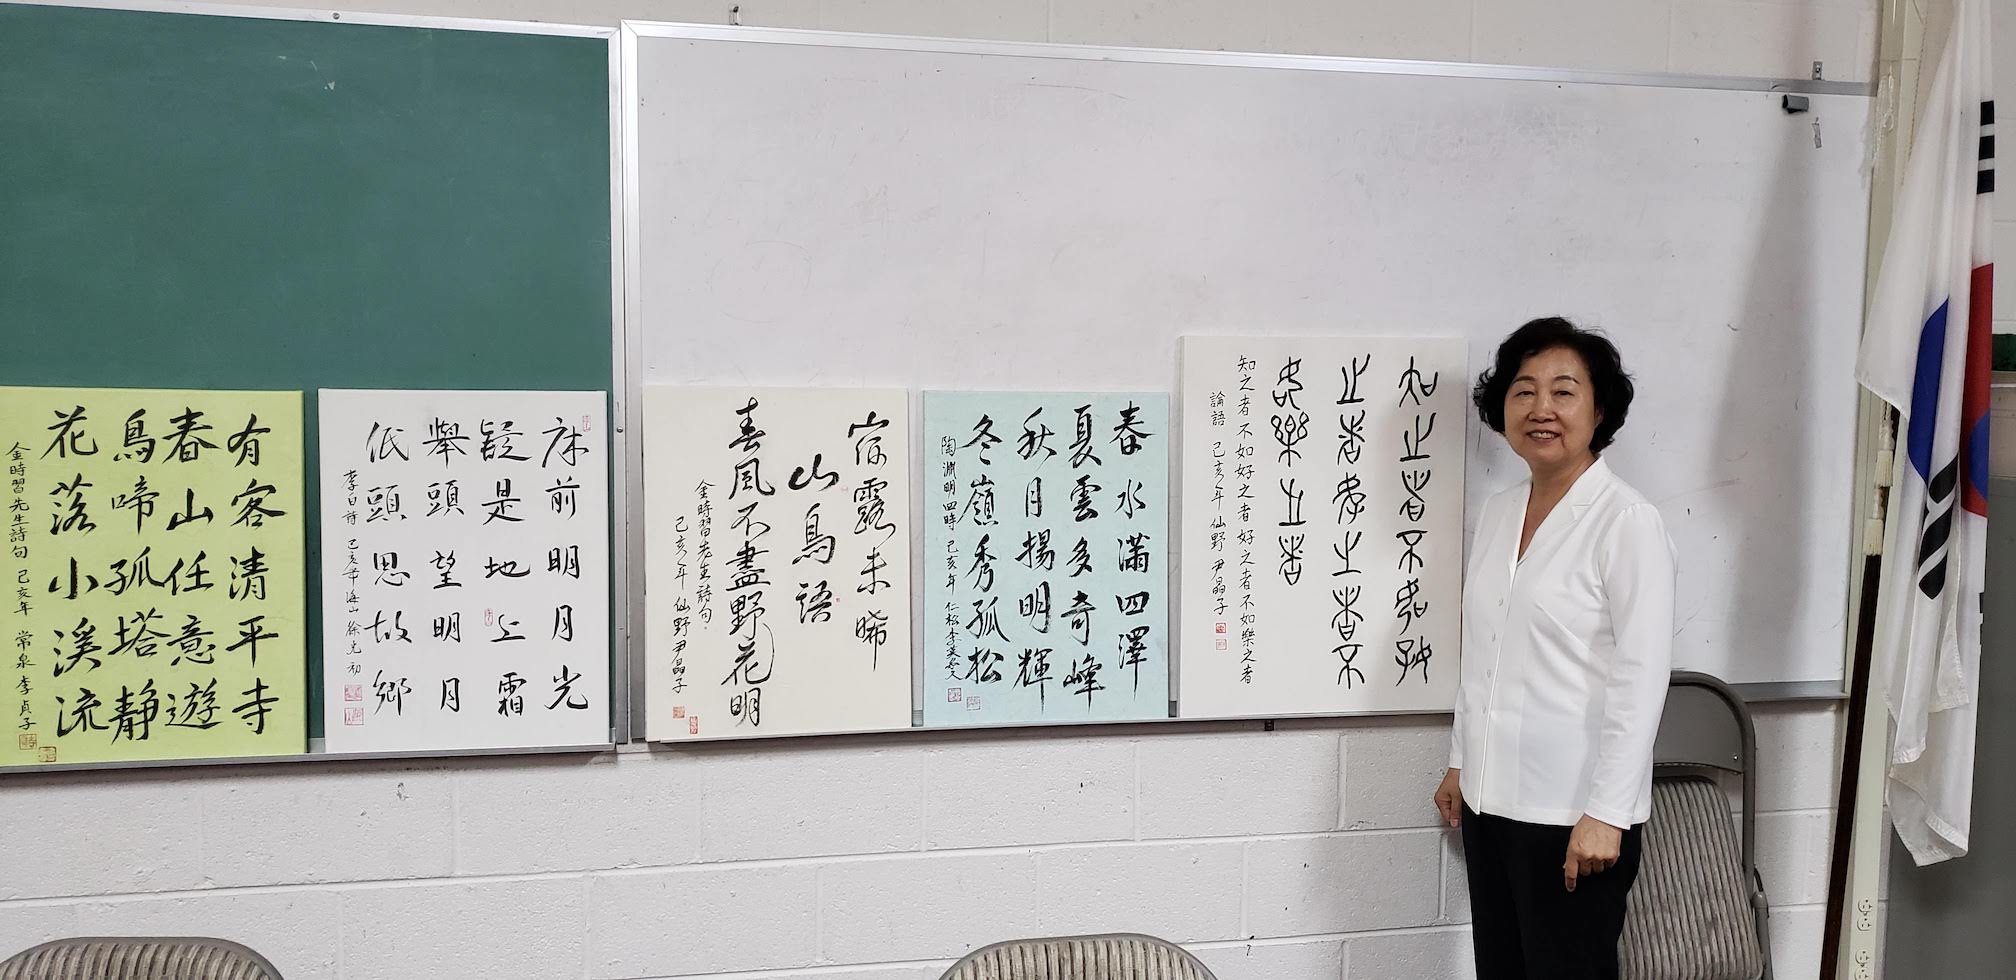 有客清平寺
春山任意遊
鳥啼孤塔靜
花落小溪流
金時習先生詩句 己亥年 常泉 李貞子
床前明月光
疑是地上霜
舉頭望明月
低頭思故鄉
李白詩 己亥年 海山 徐光初
宿露未晞
山鳥語
春風不盡野花明
金時習先生詩句
己亥年 仙野 尹晶子
春水滿四澤
夏雲多奇峰
秋月揚明輝
冬嶺秀孤松
陶淵明 四時 己亥年 仁松 李英
知之者不如好
之者好之者不
如樂之者
知之者不如好之者好之者不如樂之者
論語 己亥年 仙野 尹晶子